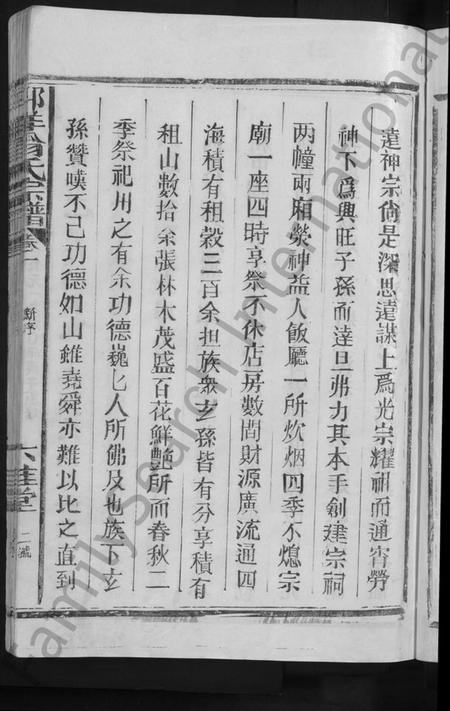 遠神宗尙是深思遠謀上爲光宗耀祖而通宵勞
神下爲興旺子孫而達旦弗力其本手創建宗祠
两幢兩廂熒神益人飯廳一所炊烟四季不熄宗
廟一座四時享祭不休店房數間財源廣流通四
海積有租穀三百余担族衆玄孫皆有分享積有
租山數拾余張林木茂盛百花鮮艷所而春秋二
季祭祀用之有余功德巍匕人所佛及也族下玄
孫贊嘆不己功德如山雖堯舜亦難以比之直到
氏宗譜
卷一
新序
六桂堂
二
FamilySearch International